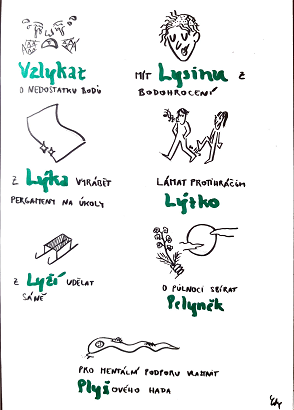 Vzlykat
O NEDOSTATKU BODŮ
MÍT Lysinu Z
BODOHROCENÍ
Z Lýka VYRÁBĚT
PERGAMENY NA ÚKOLY
LÁMAT PROTIHRÁČŮM
Lýtko
Z Lyží UDĚLAT
SÁNĚ
O PŮLNOCI SBÍRAT
Pelyněk
PRO MENTÁLNÍ PODPORU VLASTNIT
PlyšOVÉHO HADA